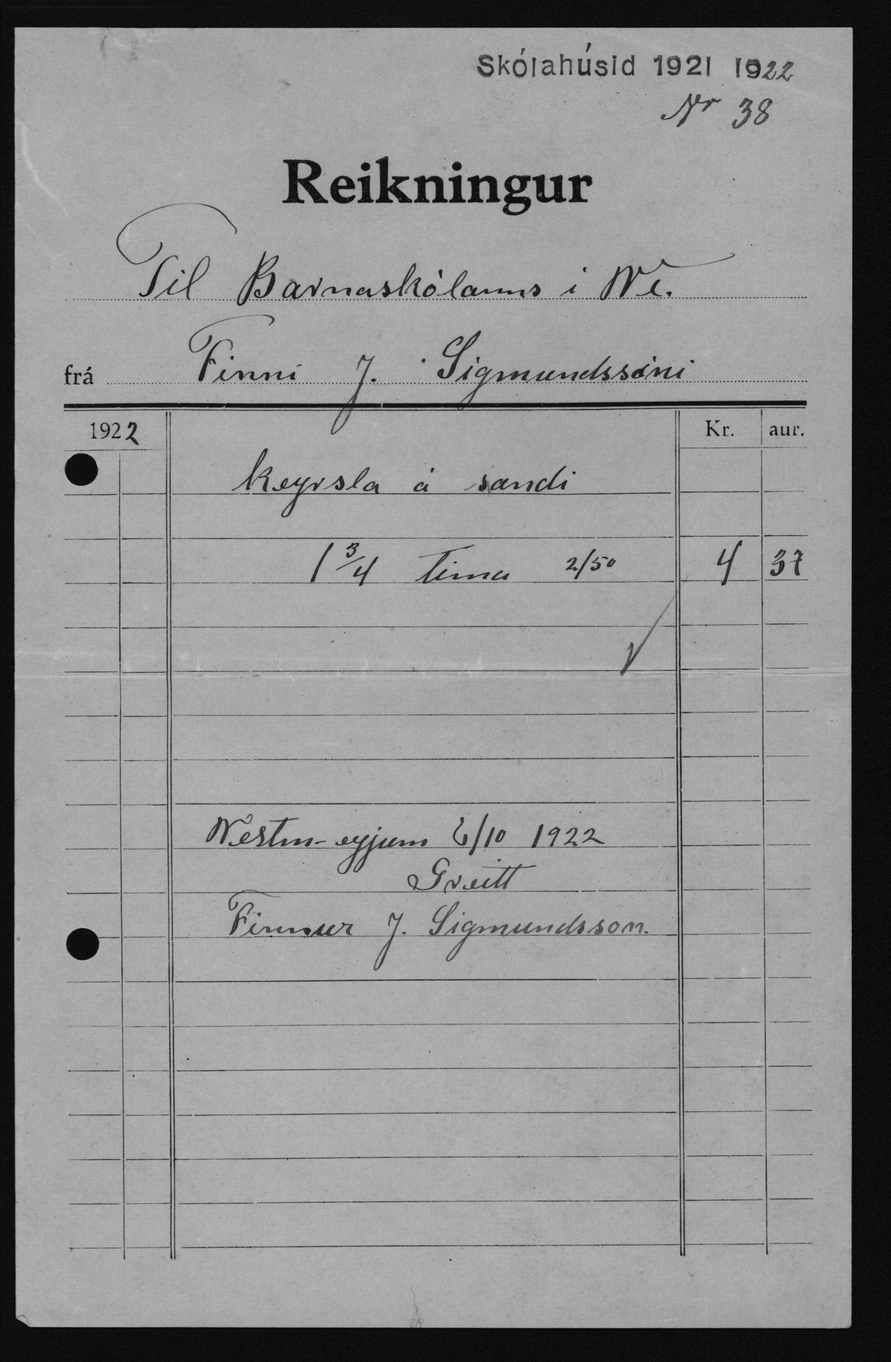 Skólahúsið 1921 1922
Nr 38
Reikningur
Til Barnaskólanns i Ve.
frá Finni J. Sigmundssini
1922 Kr. aur.
keyrsla á sandi
1 3/4 tima 2/50 4 37
Vestm-eyjum 6/10 1922
Greitt
Finnur J. Sigmundsson.